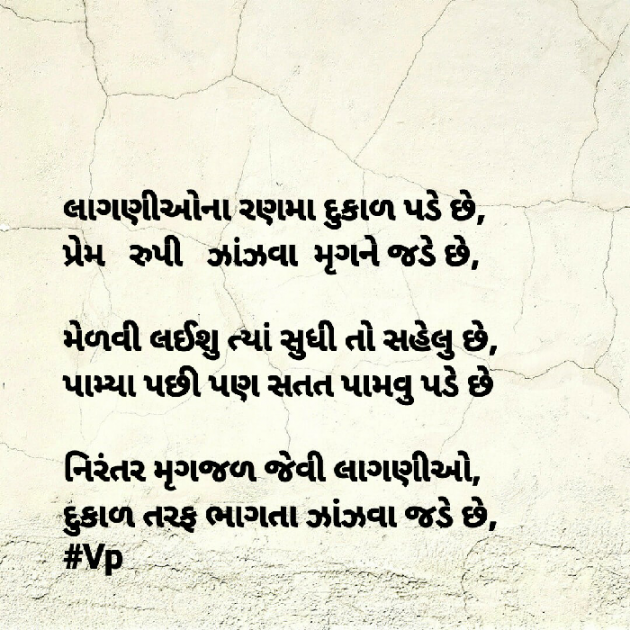 લાગણીઓના રણમા દુકાળ પડે છે,
પ્રેમ રુપી ઝાંઝવા મૃગને જડે છે,
મેળવી લઈશુ ત્યાં સુધી તો સહેલુ છે,
પામ્યા પછી પણ સતત પામવુ પડે છે
નિરંતર મૃગજળ જેવી લાગણીઓ,
દુકાળ તરફ ભાગતા ઝાંઝવા જડે છે,
#Vp